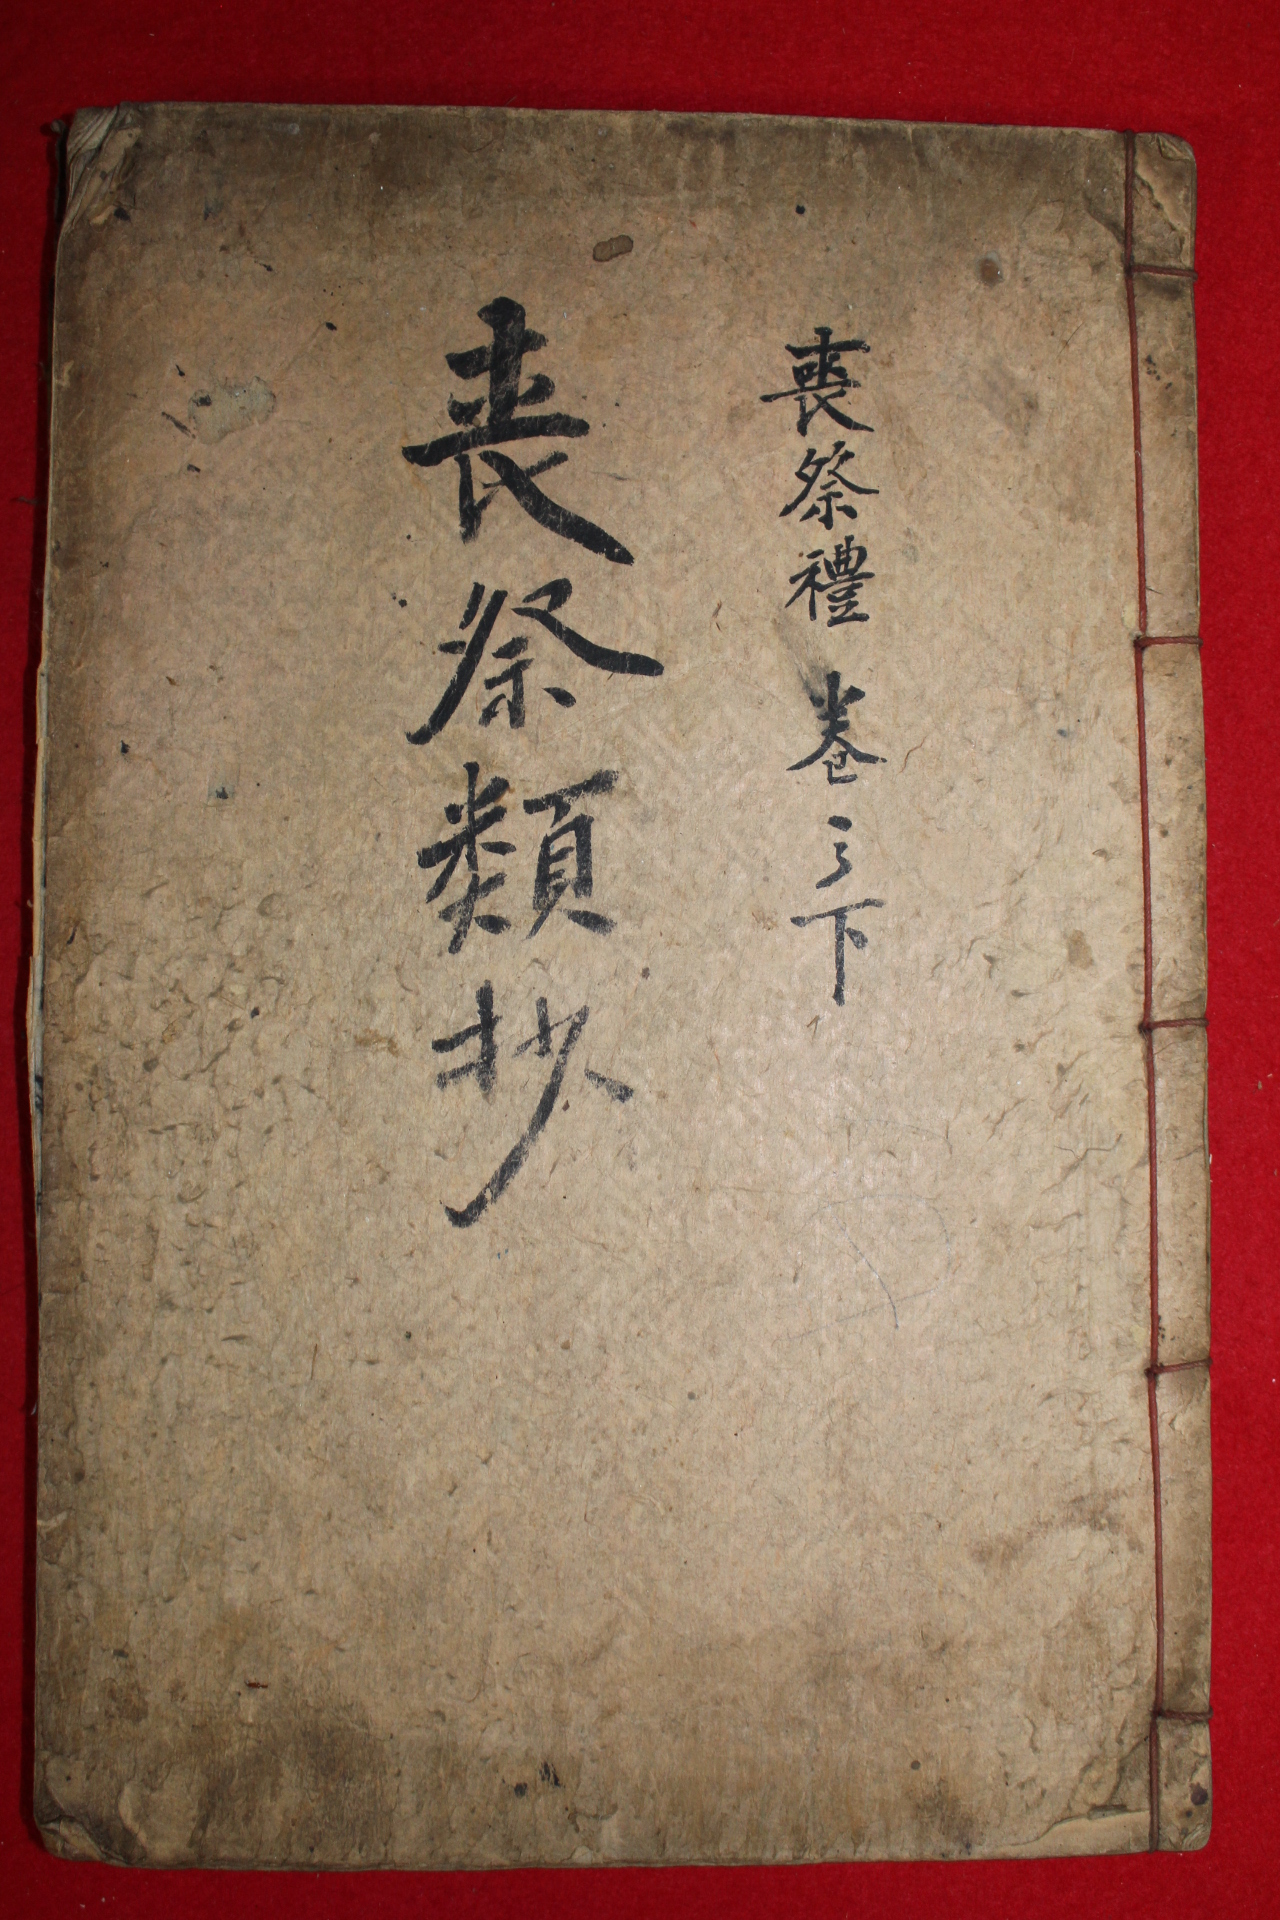 喪祭禮 卷之下
喪祭類抄